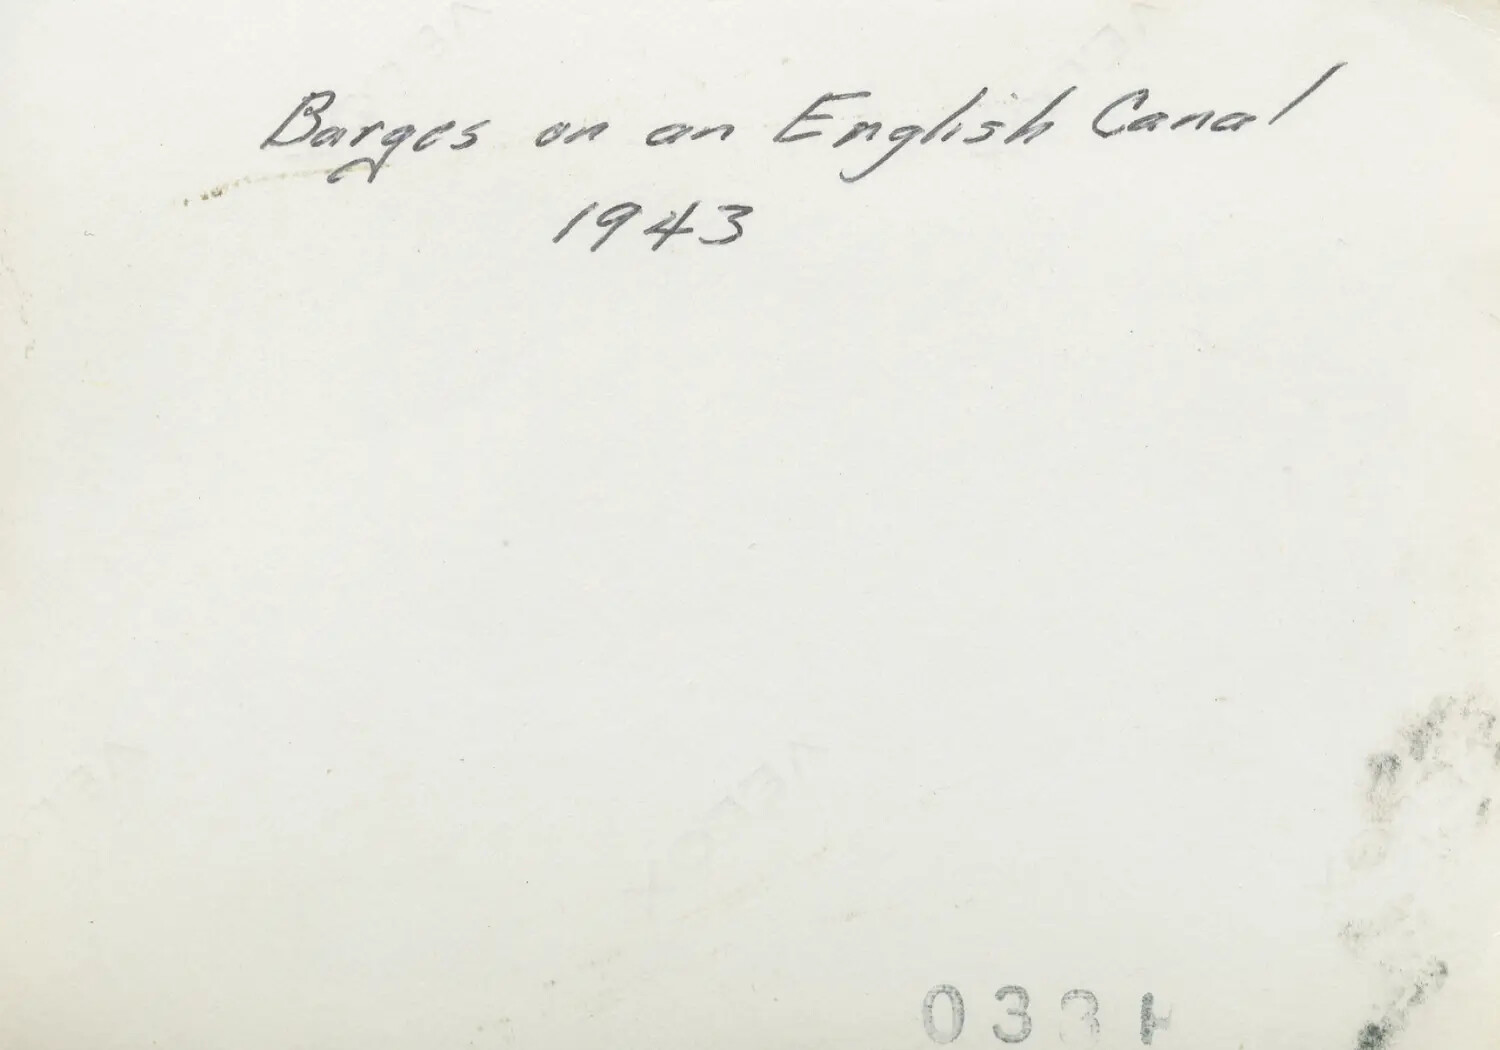 Barges on an English Canal
1943
VELOX
033